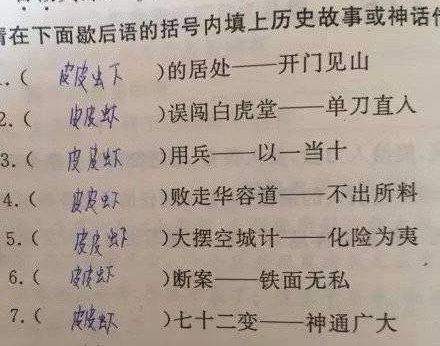 请在下面歇后语的括号内填上历史故事或神话
1.( 皮皮虾 )的居处——开门见山
2.( 皮皮虾 )误闯白虎堂——单刀直人
3.( 皮皮虾 )用兵——以一当十
4.( 皮皮虾 )败走华容道——不出所料
5.( 皮皮虾 )大摆空城计——化险为夷
6.( 皮皮虾 )断案——铁面无私
7.( 皮皮虾 )七十二变——神通广大